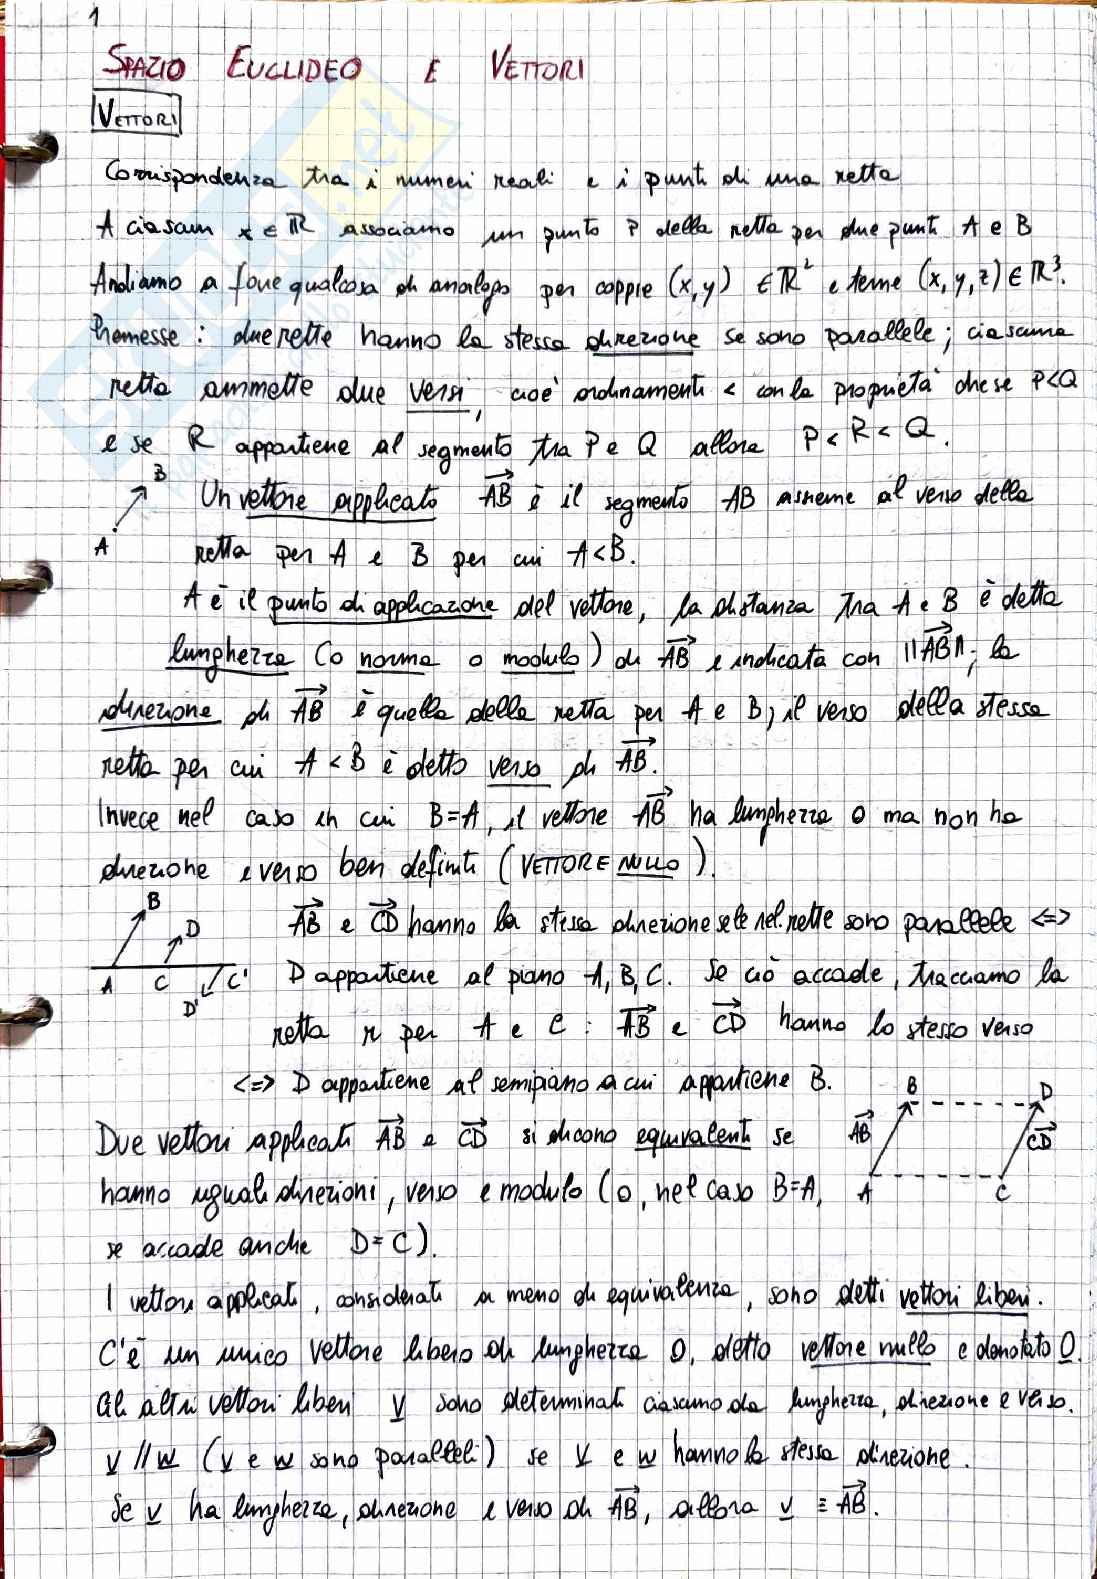 1
SPAZIO EUCLIDEO E VETTORI
VETTORI
Corrispondenza tra i numeri reali e i punti di una retta
A ciascun x ∈ ℝ associamo un punto P della retta per due punti A e B
Andiamo a fare qualcosa di analogo per coppie (x,y) ∈ ℝ² e terne (x,y,z) ∈ ℝ³.
Premesse : due rette hanno la stessa direzione se sono parallele ; ciascuna
retta ammette due versi, cioè ordinamenti < con la proprietà che se P<Q
e se R appartiene al segmento tra P e Q allora P < R < Q.
B
A
Un vettore applicato AB→ è il segmento AB assieme al verso della
retta per A e B per cui A<B.
A è il punto di applicazione del vettore, la distanza tra A e B è detta
lunghezza (o norma o modulo) di AB→ e indicata con ||AB→||; la
direzione di AB→ è quella della retta per A e B; il verso della stessa
retta per cui A < B è detto verso di AB→.
Invece nel caso in cui B=A, il vettore AB→ ha lunghezza 0 ma non ha
direzione e verso ben definiti (VETTORE NULLO).
B
D
A C C'
D'
AB→ e CD→ hanno la stessa direzione se le rel. rette sono parallele <=>
D appartiene al piano A, B, C. Se ciò accade, tracciamo la
retta r per A e C : AB→ e CD→ hanno lo stesso verso
<=> D appartiene al semipiano a cui appartiene B.
B D
AB→ CD→
A C
Due vettori applicati AB→ e CD→ si dicono equivalenti se
hanno uguali direzioni, verso e modulo (o, nel caso B=A,
se accade anche D=C).
I vettori applicati, considerati a meno di equivalenza, sono detti vettori liberi.
C'è un unico vettore libero di lunghezza 0, detto vettore nullo e denotato 0.
Gli altri vettori liberi v sono determinati ciascuno da lunghezza, direzione e verso.
v // w (v e w sono paralleli) se v e w hanno la stessa direzione.
Se v ha lunghezza, direzione e verso di AB→, allora v ≡ AB→.